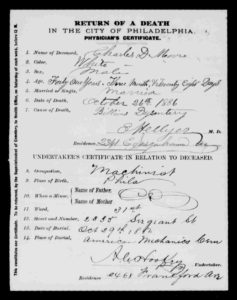 RETURN OF A DEATH
IN THE CITY OF PHILADELPHIA.
PHYSICIAN'S CERTIFICATE.
1. Name of Deceased, Charles D
2. Color, White
3. Sex, Male
4. Age, Forty One Years, Three Months, Twenty Eight Days
5. Married or Single, Married
6. Date of Death, October 26th 1886
7. Cause of Death, Bilious Dysentery
M. D.
Residence,
UNDERTAKER'S CERTIFICATE IN RELATION TO DECEASED.
8. Occupation, Machinist
9. Place of Birth, Phila
10. When a Minor, Name of Father,
Name of Mother,
11. Ward, 31st
12. Street and Number, 2335 Sergeant St
13. Date of Burial, Oct 29th 1886
14. Place of Burial, American Mechanics Cem
Undertaker.
Residence 2461 Frankford Ave